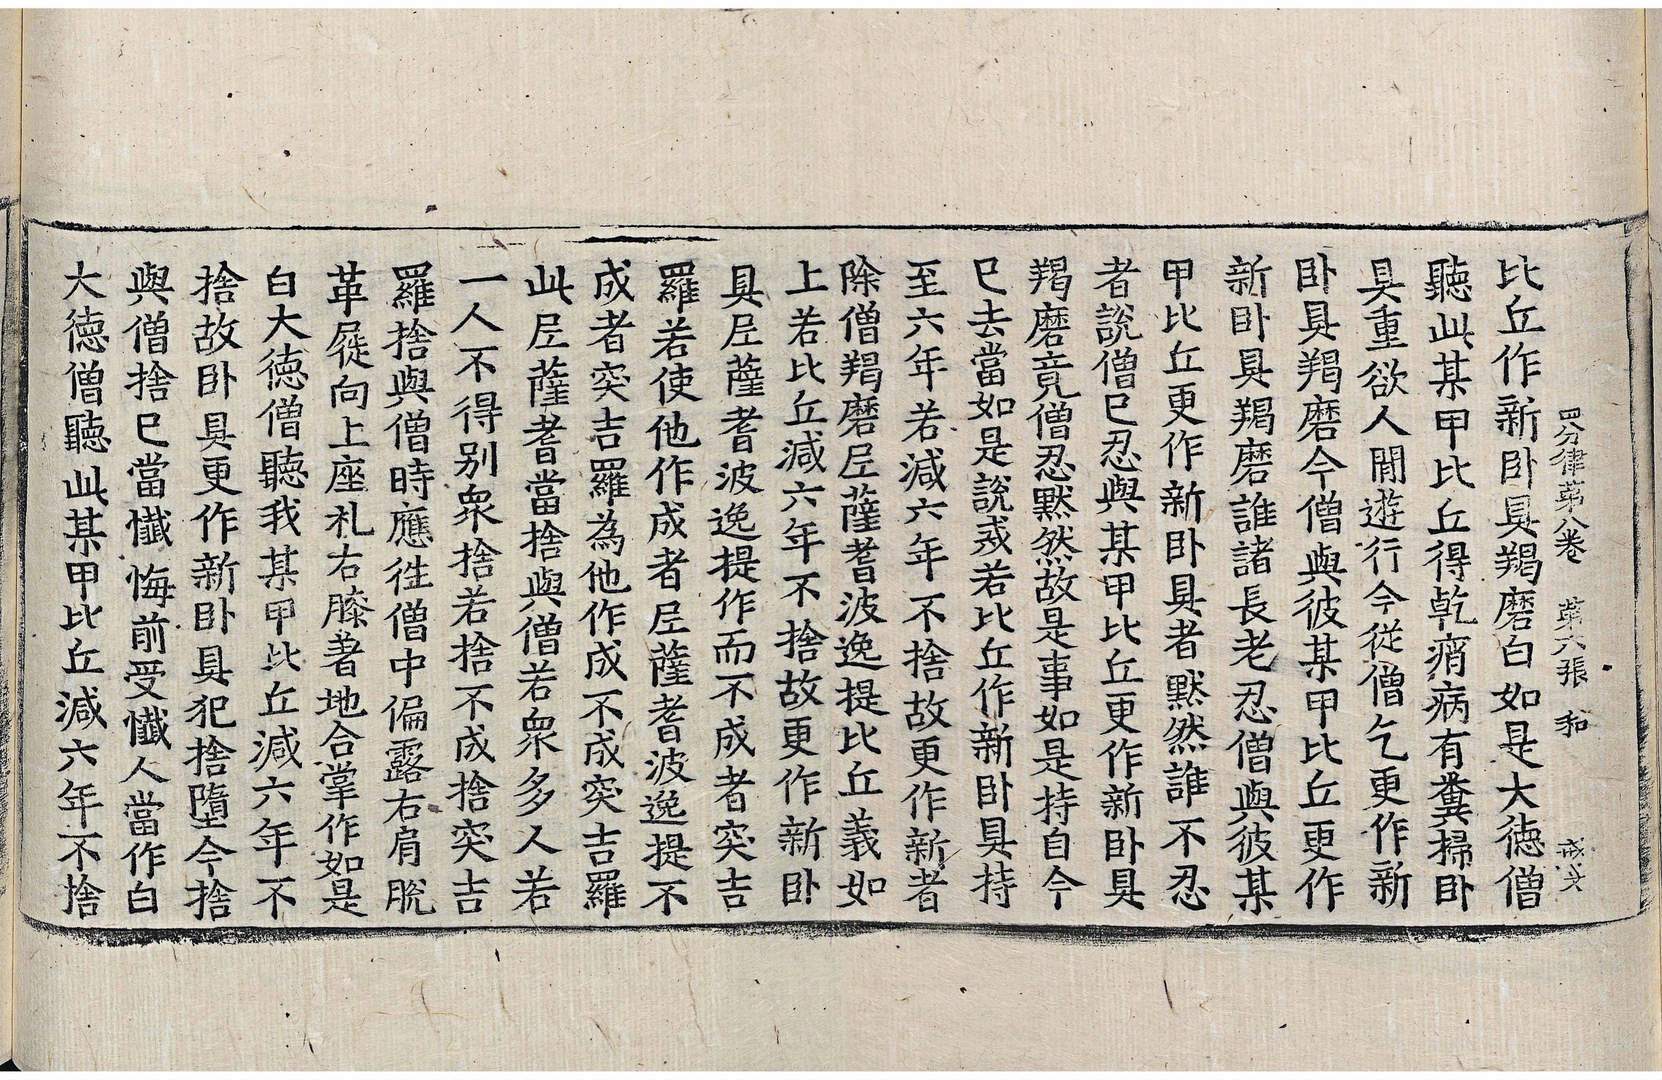 四分律第八卷　第六張　和
比丘作新卧具羯磨白如是大德僧
聽此某甲比丘得乾痟病有糞掃卧
具重欲人閒遊行今從僧乞更作新
卧具羯磨今僧與彼某甲比丘更作
新卧具羯磨誰諸長老忍僧與彼某
甲比丘更作新卧具者默然誰不忍
者說僧已忍與某甲比丘更作新卧具
羯磨竟僧忍默然故是事如是持自今
已去當如是說戒若比丘作新卧具持
至六年若減六年不捨故更作新者
除僧羯磨尼薩耆波逸提比丘義如
上若比丘減六年不捨故更作新卧
具尼薩耆波逸提作而不成者突吉
羅若使他作成者尼薩耆波逸提不
成者突吉羅為他作成不成突吉羅
此尼薩耆當捨與僧若衆多人若
一人不得別衆捨若捨不成捨突吉
羅捨與僧時應徃僧中偏露右肩脫
革屣向上座礼右膝著地合掌作如是
白大德僧聽我某甲比丘減六年不
捨故卧具更作新卧具犯捨墮今捨
與僧捨已當懺悔前受懺人當作白
大德僧聽此某甲比丘減六年不捨